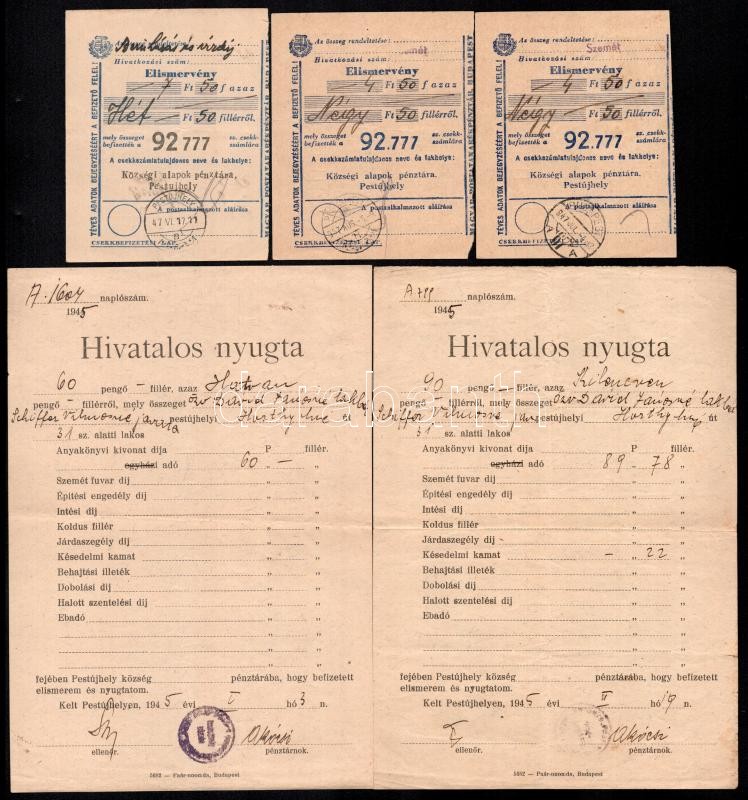 Az összeg rendeltetése:
Hivatkozási szám:
Elismervény
7 Ft 50 f azaz
Hét Ft 50 fillérről.
mely összeget befizették a
92.777
sz. csekkszámlára
A csekkszámlatulajdonos neve és lakhelye:
Községi alapok pénztára,
Pestújhely
A postaalkalmazott aláírása
PESTÚJHELY
47 VI. 17. 11
CSEKKBEFIZETÉSI LAP.
TÉVES ADATOK BEJEGYZÉSÉÉRT A BEFIZETŐ FELEL!
Az összeg rendeltetése:
Szemét
Hivatkozási szám:
Elismervény
4 Ft 50 f azaz
Négy Ft 50 fillérről.
mely összeget befizették a
92.777
sz. csekkszámlára
A csekkszámlatulajdonos neve és lakhelye:
Községi alapok pénztára.
Pestújhely
A postaalkalmazott aláírása
CSEKKBEFIZETÉSI LAP.
TÉVES ADATOK BEJEGYZÉSÉÉRT A BEFIZETŐ FELEL!
MAGYAR POSTATAKARÉKPÉNZTÁR, BUDAPEST
Az összeg rendeltetése:
Szemét
Hivatkozási szám:
Elismervény
4 Ft 50 f azaz
Négy Ft 50 fillérről.
mely összeget befizették a
92.777
sz. csekkszámlára
A csekkszámlatulajdonos neve és lakhelye:
Községi alapok pénztára.
Pestújhely
A postaalkalmazott aláírása
CSEKKBEFIZETÉSI LAP.
TÉVES ADATOK BEJEGYZÉSÉÉRT A BEFIZETŐ FELEL!
A. 1604 naplószám.
1945
Hivatalos nyugta
60 pengő – fillér, azaz Hatvan
pengő – fillérről, mely összeget özv Dávid Jánosné lakb.
Schiffer Vilmosné javára pestújhelyi Horthy út
31 sz. alatti lakos
Anyakönyvi kivonat dija P fillér.
egyházi adó 60 –
Szemét fuvar dij „ „
Építési engedély dij „ „
Intési dij „ „
Koldus fillér „ „
Járdaszegély dij „ „
Késedelmi kamat „ „
Behajtási illeték „ „
Dobolási dij „ „
Halott szentelési dij „ „
Ebadó „ „
fejében Pestújhely község pénztárába, hogy befizetett
elismerem és nyugtatom.
Kelt Pestújhelyen, 1945 évi I hó 3 n.
ellenőr. pénztárnok.
5682 — Paár-nyomda, Budapest
A 799 naplószám.
1945
Hivatalos nyugta
90 pengő – fillér, azaz Kilencven
pengő – fillérről, mely összeget özv Dávid Jánosné lakb.
Schiffer Vilmosné javára pestújhelyi Horthy út
31 sz. alatti lakos
Anyakönyvi kivonat dija P fillér.
egyházi adó 89 78
Szemét fuvar dij „ „
Építési engedély dij „ „
Intési dij „ „
Koldus fillér „ „
Járdaszegély dij „ „
Késedelmi kamat – 22
Behajtási illeték „ „
Dobolási dij „ „
Halott szentelési dij „ „
Ebadó „ „
fejében Pestújhely község pénztárába, hogy befizetett
elismerem és nyugtatom.
Kelt Pestújhelyen, 1945 évi II hó 19 n.
ellenőr. pénztárnok.
5682 — Paár-nyomda, Budapest
darabanth